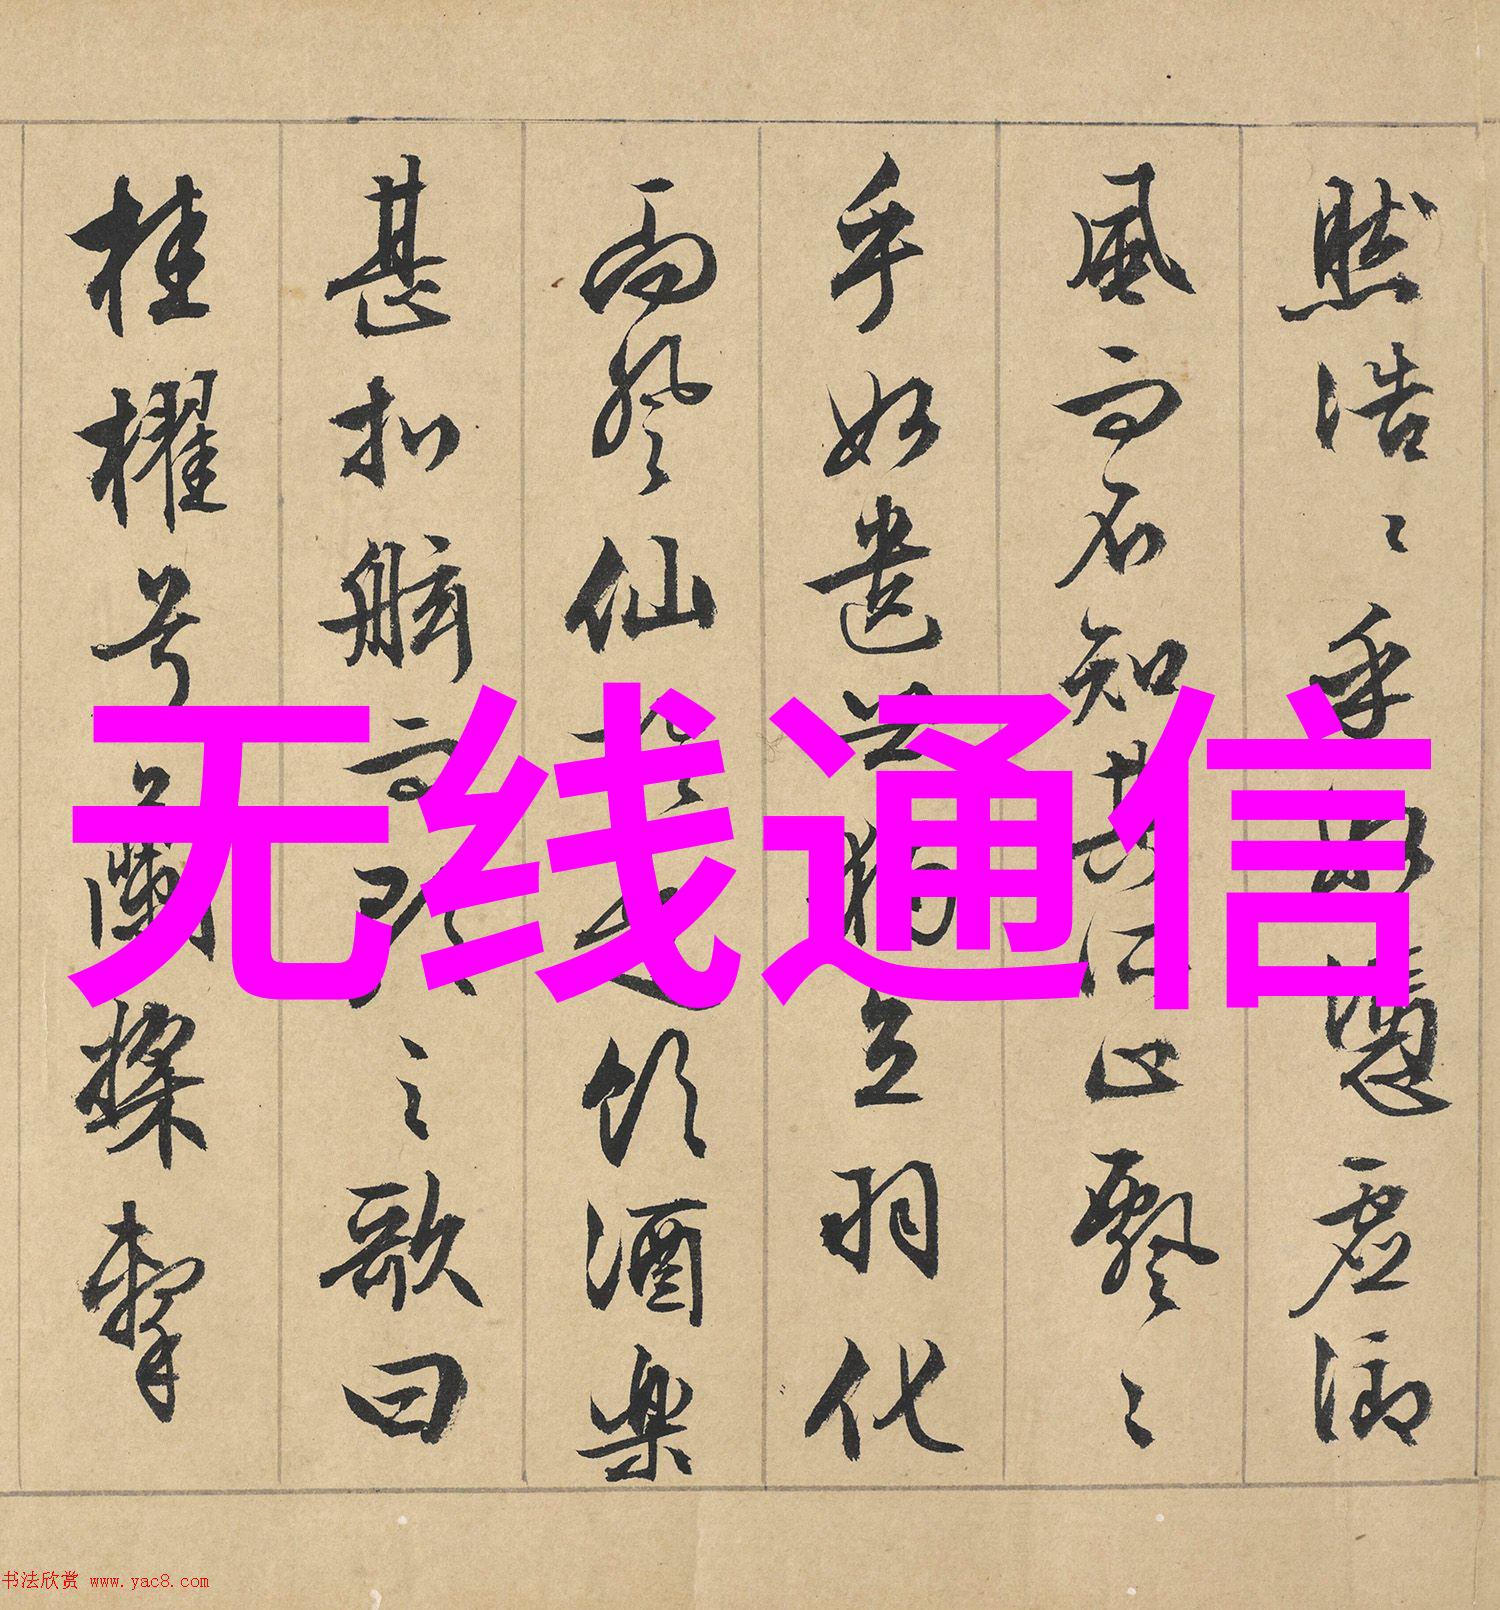 然浩〻乎如憑虚御
風而不知其所止飄〻
乎如遺世獨立羽化
而登仙於是飲酒樂
甚扣舷而歌之歌曰
桂櫂兮蘭槳擊
无线通信
书法欣赏 www.yac8.com